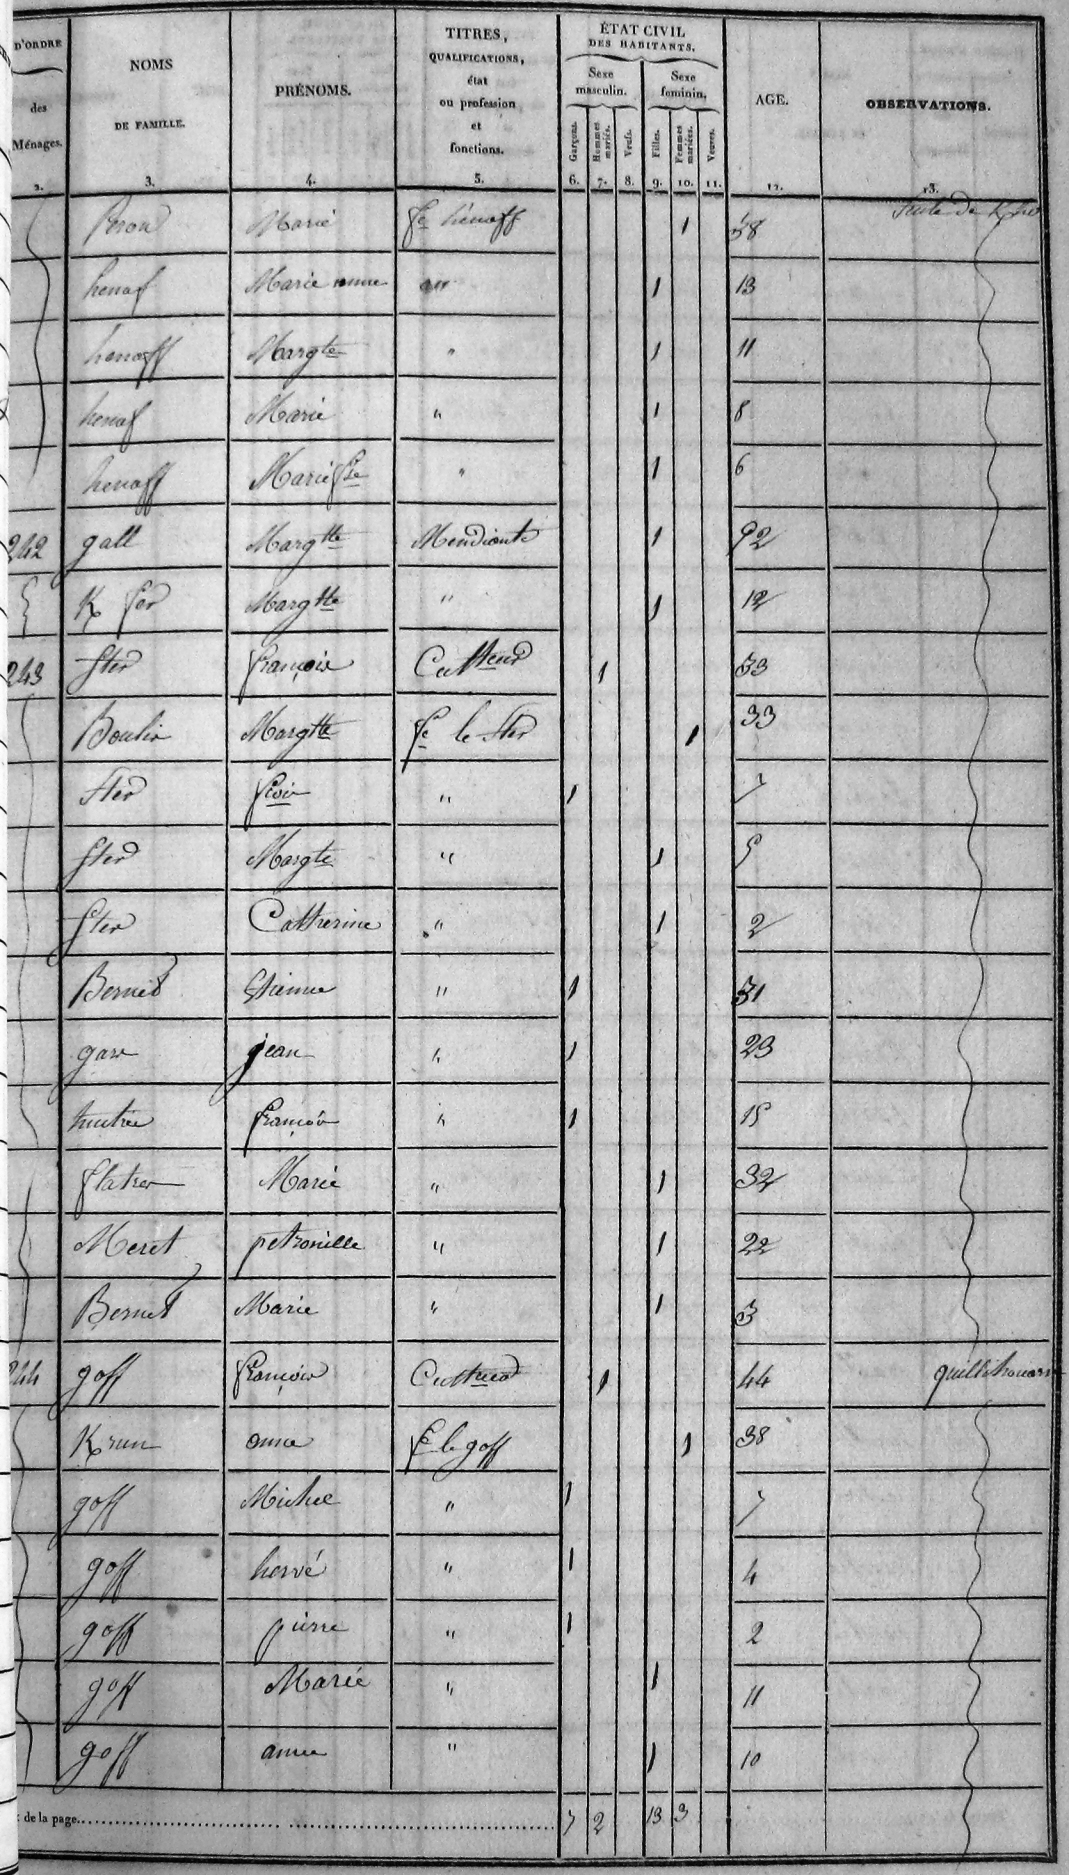 D'ORDRE des Ménages. 2.
NOMS DE FAMILLE. 3.
PRÉNOMS. 4.
TITRES, QUALIFICATIONS, état ou profession et fonctions. 5.
ÉTAT CIVIL DES HABITANTS.
Sexe masculin. Sexe feminin.
Garçons. 6. Hommes mariés. 7. Veufs. 8. Filles. 9. Femmes mariées. 10. Veuves. 11.
AGE. 12.
OBSERVATIONS. 13.
Peron Marie fe hénaff 1 58 Suite de
henaf Marie anne " 1 13
henaff Margte " 1 11
henaf Marie " 1 8
henaff Marie fse " 1 6
242 gall Margtte Mendiante 1 92
K Margtte " 1 12
243 Ster françois Cultteur 1 33
Boulic Margtte fe le Ster 1 33
Ster fcois " 1 7
Ster Margte " 1 5
Ster Catherine " 1 2
Bernet Etienne " 1 31
garo jean " 1 23
françois " 1 15
flatrer Marie " 1 32
Meret petronille " 1 22
Bernet Marie " 1 3
244 goff françois Cultteur 1 44
K run anne fe le goff 1 38
goff Michel " 1 7
goff hervé " 1 4
goff pierre " 1 2
goff Marie " 1 11
goff anne " 1 10
de la page 7 2 13 3